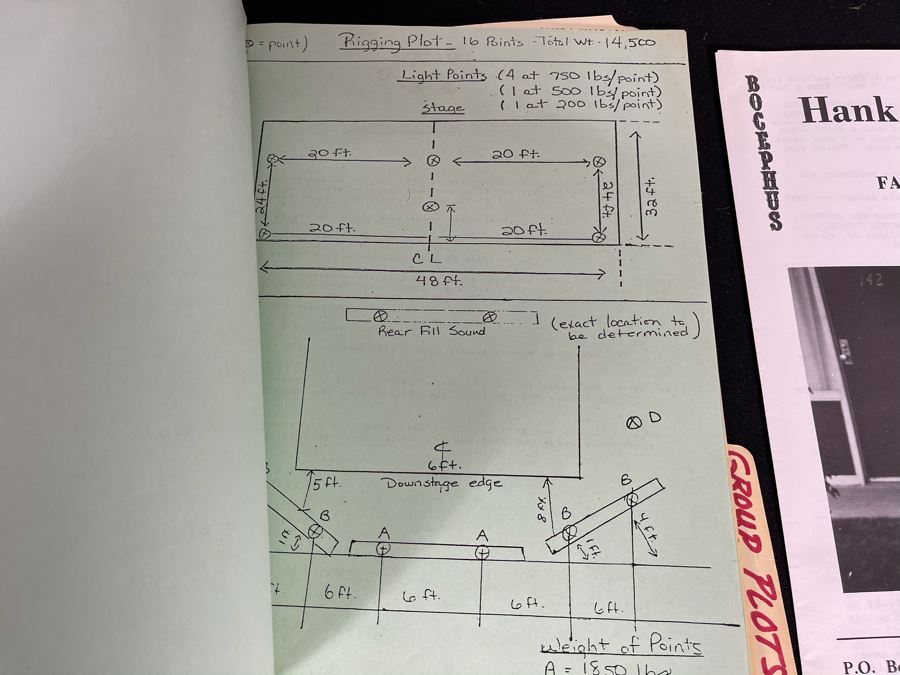 ⊗ = point) Rigging Plot - 16 Points - Total Wt. - 14,500
Light Points (4 at 750 lbs/point)
(1 at 500 lbs/point)
(1 at 200 lbs/point)
stage
20 ft. 20 ft.
24 ft. 24 ft. 32 ft.
20 ft. 20 ft.
C L
48 ft.
Rear Fill Sound (exact location to be determined)
D
6 ft.
Downstage edge
5 ft.
B B
B A A
1 ft 1 ft 4 ft
6 ft. 6 ft. 6 ft. 6 ft.
Weight of Points
A = 1850 lbs
GROUP PLOTS
BOCEPHUS
Hank
FA
142
P.O. B